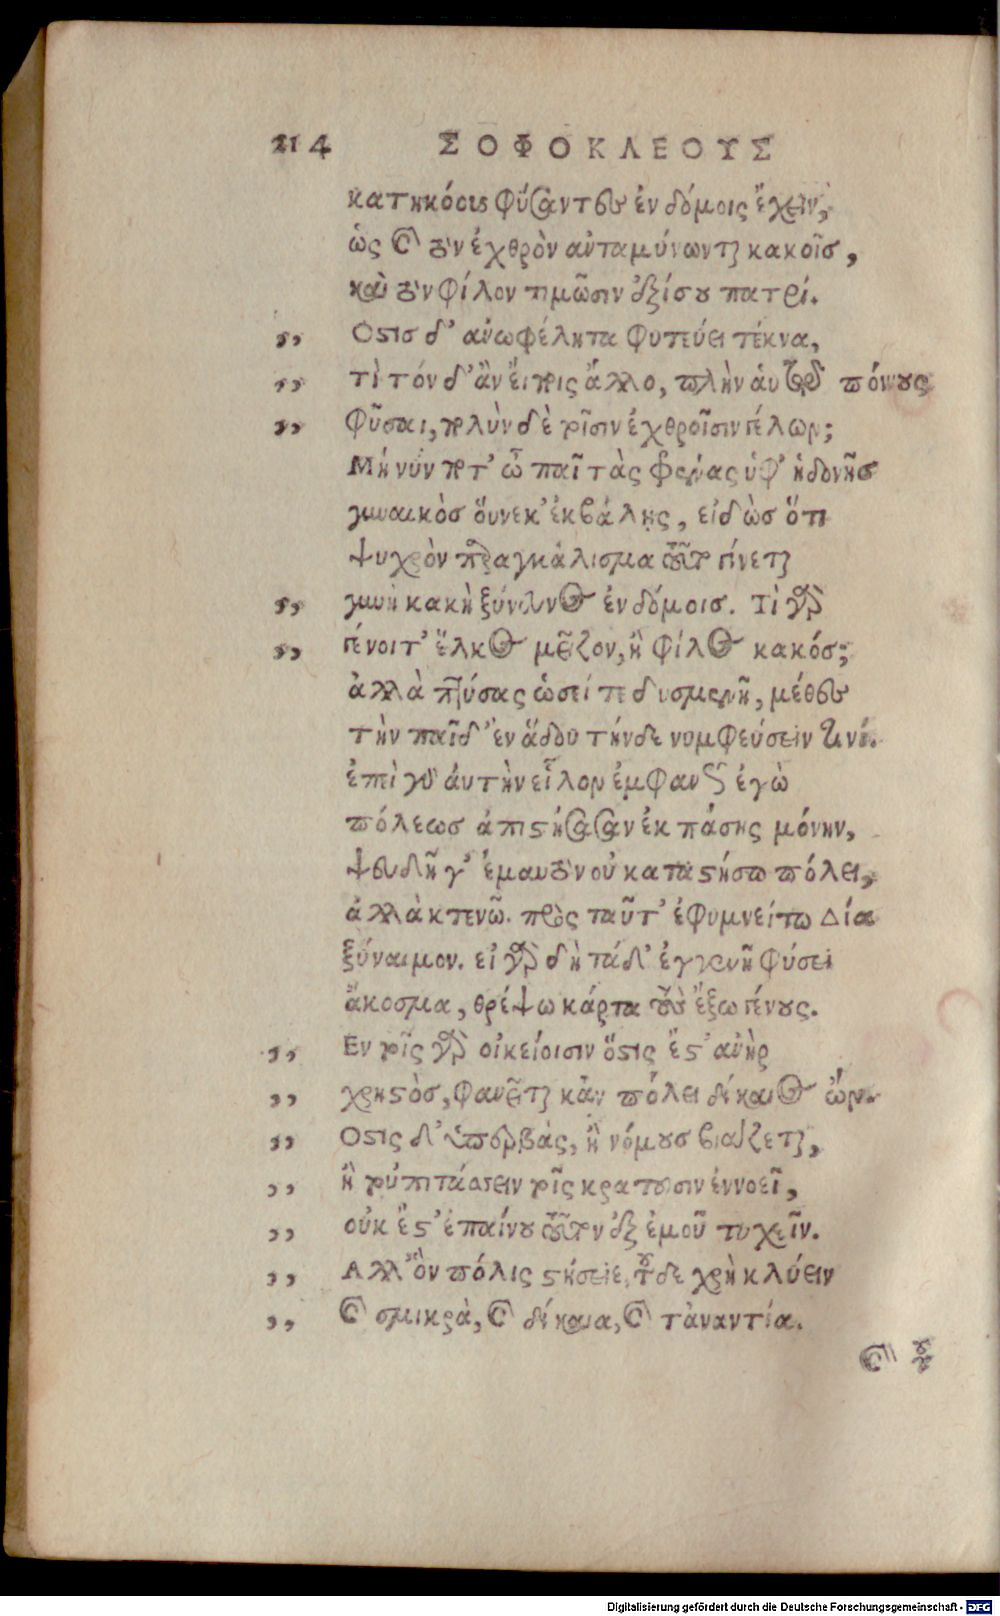 214 ΣΟΦΟΚΛΕΟΥΣ
κατηκόους φύσαντας ἐν δόμοις ἔχειν,
ὡς καὶ τὸν ἐχθρὸν ἀνταμύνωνται κακοῖς,
καὶ τὸν φίλον τιμῶσιν ἐξίσου πατρί.
,, Ὅστις δ' ἀνωφέλητα φυτεύει τέκνα,
,, τί τόνδ' ἂν εἴποις ἄλλο, πλὴν αὑτῷ πόνους
,, φῦσαι, πολὺν δὲ τοῖσιν ἐχθροῖσιν γέλων;
Μή νύν ποτ' ὦ παῖ τὰς φρένας ὑφ' ἡδονῆς
γυναικὸς οὕνεκ' ἐκβάλῃς, εἰδὼς ὅτι
ψυχρὸν παραγκάλισμα τοῦτο γίνεται
,, γυνὴ κακὴ ξύνευνος ἐν δόμοις. Τί γὰρ
,, γένοιτ' ἕλκος μεῖζον, ἢ φίλος κακός;
ἀλλὰ πτύσας ὡσεί τε δυσμενῆ, μέθες
τὴν παῖδ' ἐν ᾅδου τήνδε νυμφεύσειν τινί.
ἐπεὶ γὰρ αὐτὴν εἷλον ἐμφανῶς ἐγὼ
πόλεως ἀπιστήσασαν ἐκ πάσης μόνην,
ψευδῆ γ' ἐμαυτὸν οὐ καταστήσω πόλει,
ἀλλὰ κτενῶ. πρὸς ταῦτ' ἐφυμνείτω Δία
ξύναιμον. εἰ γὰρ δὴ τάδ' ἐγγενῆ φύσει
ἄκοσμα, θρέψω κάρτα τοὺς ἔξω γένους.
,, Ἐν τοῖς γὰρ οἰκείοισιν ὅστις ἔστ' ἀνὴρ
,, χρηστὸς, φανεῖται κἀν πόλει δίκαιος ὤν.
,, Ὅστις δ' ὑπερβὰς, ἢ νόμους βιάζεται,
,, ἢ τοὐπιτάσσειν τοῖς κρατοῦσιν ἐννοεῖ,
,, οὐκ ἔστ' ἐπαίνου τοῦτον ἐξ ἐμοῦ τυχεῖν.
,, Ἀλλ' ὃν πόλις στήσειε, τοῦδε χρὴ κλύειν
,, καὶ σμικρὰ, καὶ δίκαια, καὶ τἀναντία.
καὶ τοῦ
Digitalisierung gefördert durch die Deutsche Forschungsgemeinschaft - DFG